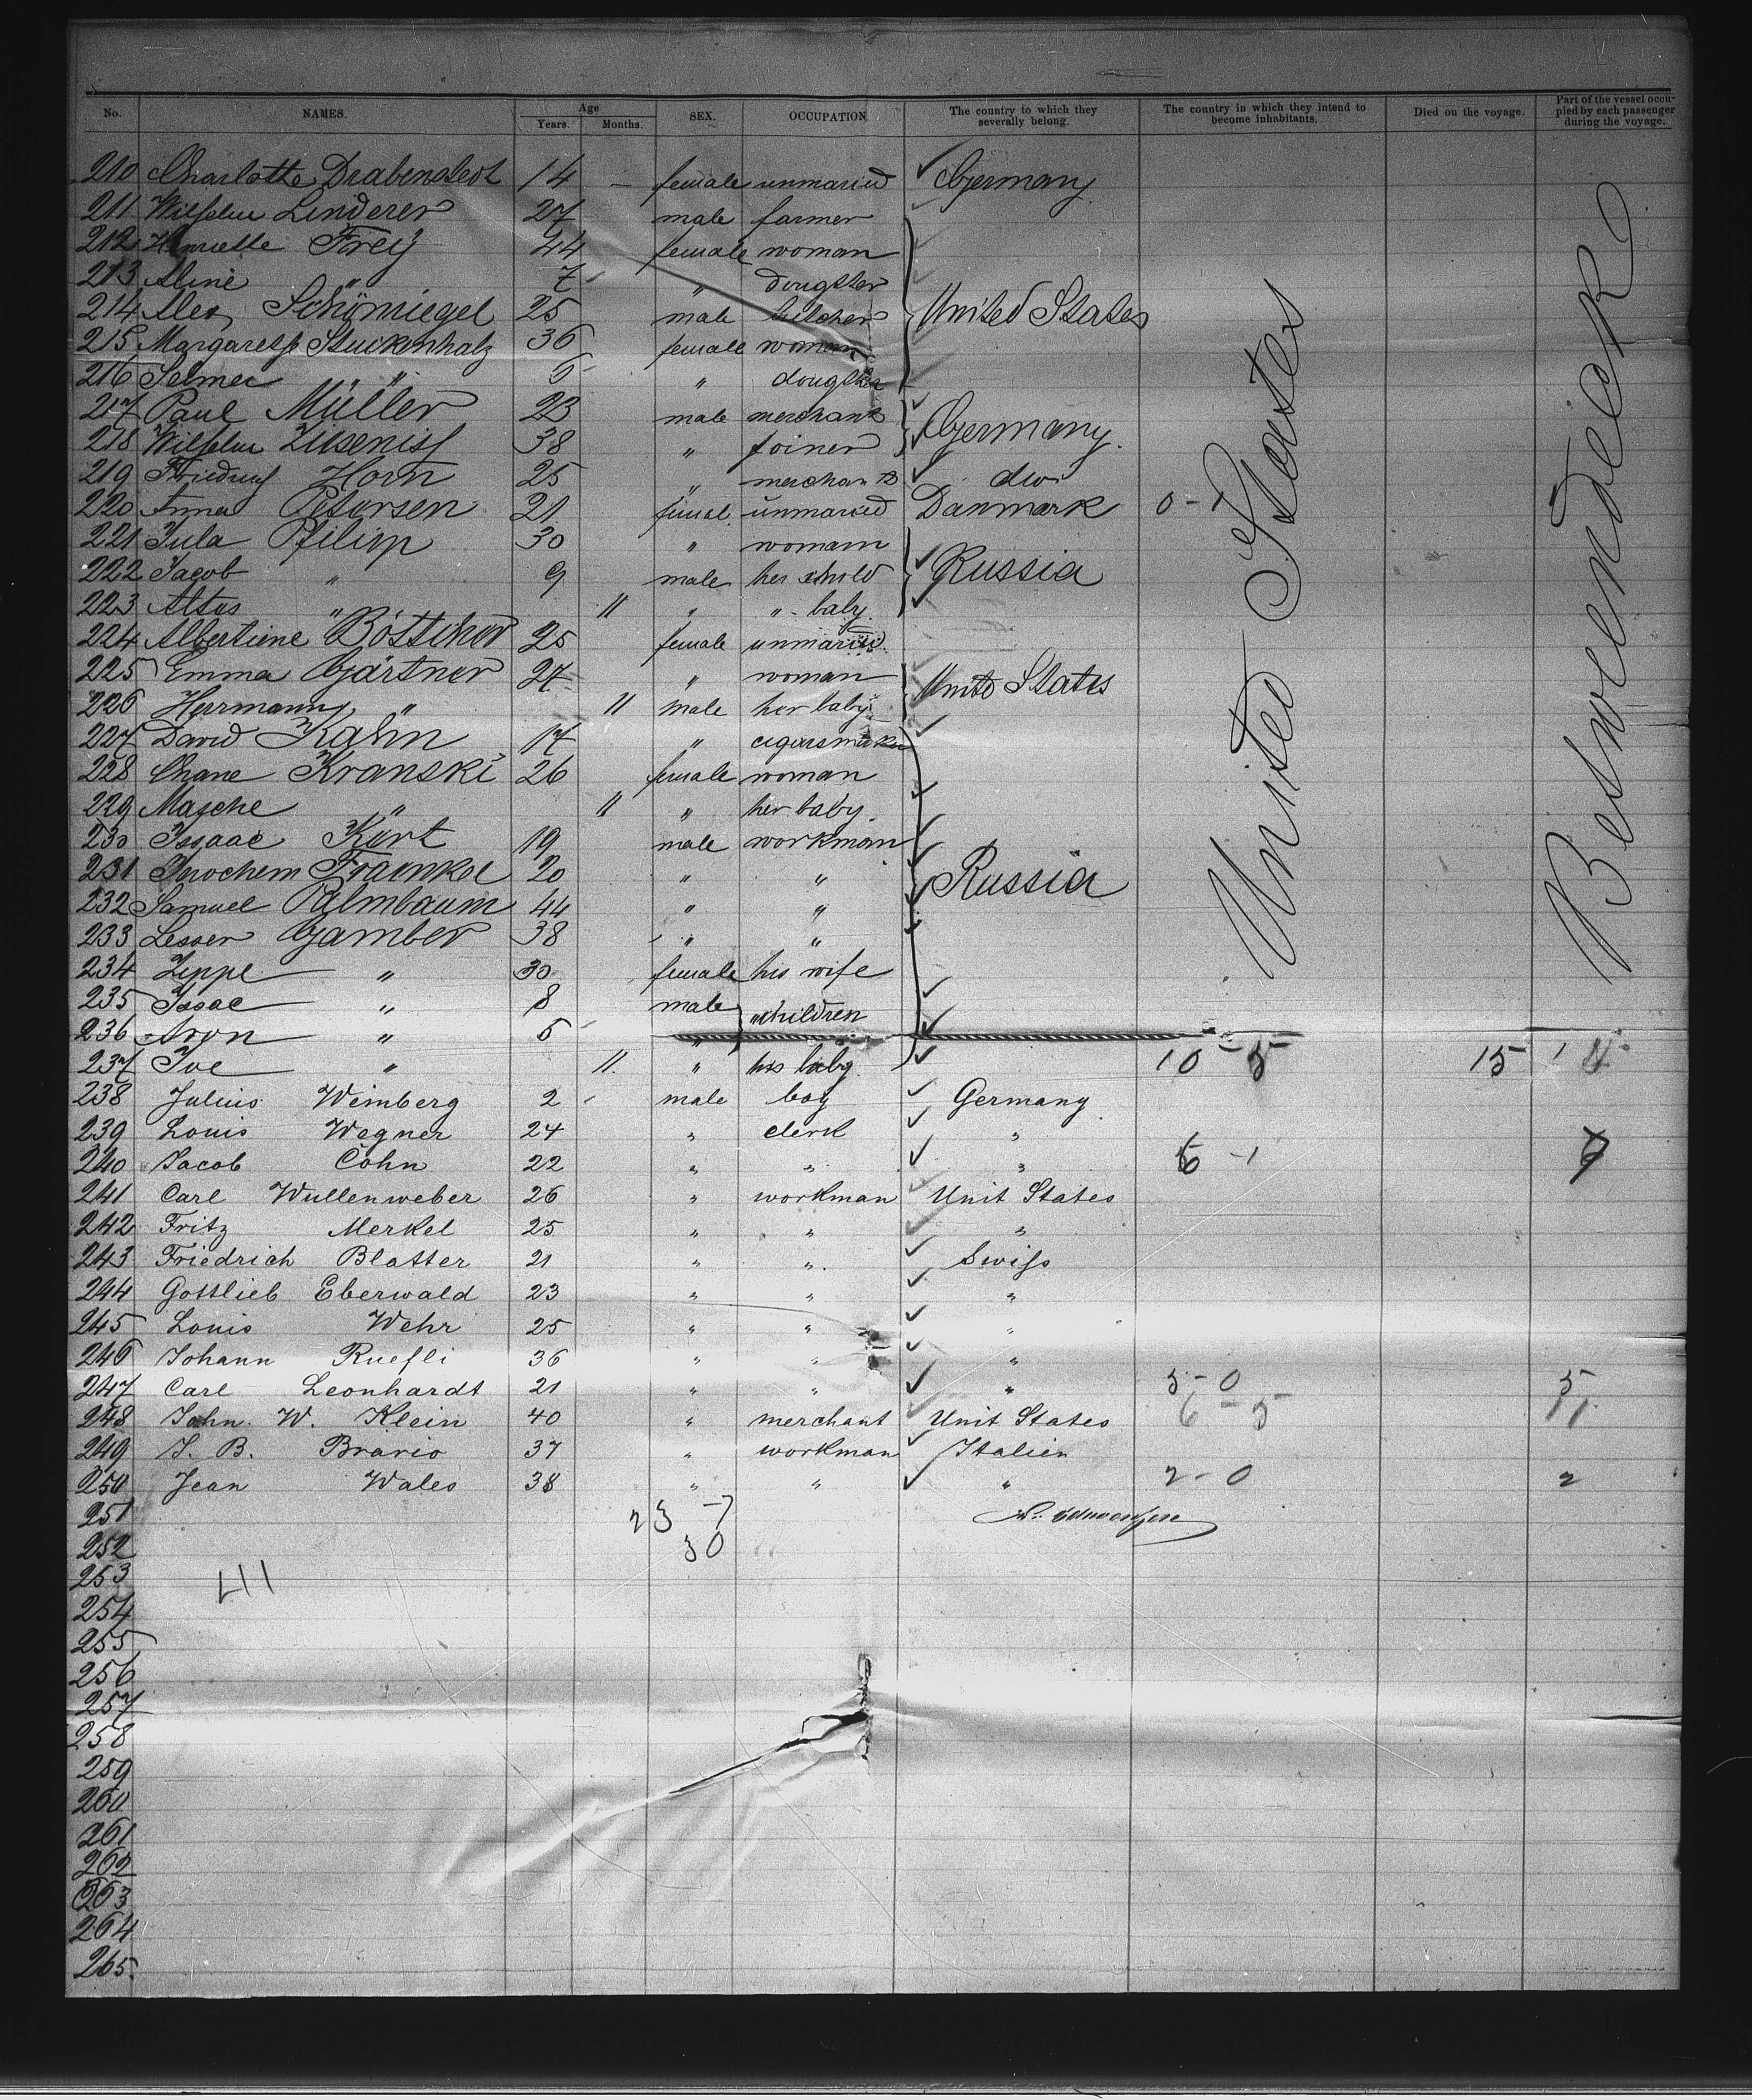 No. NAMES. Age Years. Months. SEX. OCCUPATION. The country to which they severally belong. The country in which they intend to become inhabitants. Died on the voyage. Part of the vessel occupied by each passenger during the voyage.
210 Charlotte Drabenstedt 14 - female unmaried Germany
211 Wilhelm Linderer 27 male farmer
212 Henriette Frey 44 female woman
213 Aline " 7 " doughter
214 Alex Schmiegel 25 male United States
215 Margareth Stuckenholz 36 female woman
216 Selmer " " doughter
217 Paul Müller 23 male merchant Germany
218 Wilhelm 38 " joiner
219 Friedrich Horn 25 " merchant
220 Anna Petersen 21 femal unmaried Danmark 0-1
221 Jula Philipp 30 " womann
222 Jacob " 9 male her child Russia
223 " 11 " " baby
224 Albertiene Böttcher 25 female unmaried
225 Emma Gärtner 27 " woman Unitd States
226 Herrmann " 11 male her baby
227 David Kahn 17 " cigarsmaker
228 Chane Kranski 26 female woman
229 Masche " 11 " her baby
230 Issaac Kort 19 male workman
231 Fraenkel 20 " " Russia
232 Samuel Palmbaum 44 " "
233 Lesser Gamber 38 " "
234 Zippe " 30 female his wife
235 Issac " 8 male " children
236 Aron " 5 "
237 " 11. " his baby 10-5 15
238 Julius Weinberg 2 - male boy Germany
239 Louis Wegner 24 " clerk "
240 Jacob Cohn 22 " " " 6-1
241 Carl Wullenweber 26 " workman Unit States
242 Fritz Merkel 25 " " "
243 Friedrich Blatter 21 " " Swiss
244 Gottlieb Eberwald 23 " " "
245 Louis Wehr 25 " " "
246 Johann Ruefli 36 " " "
247 Carl Leonhardt 21 " " " 5-0 5
248 John W. Klein 40 " merchant Unit States 6-5 11
249 J. B. Brario 37 " workman Italien
250 Jean Wales 38 " " " 2-0 2
251 23 -7
252 30
253
254
255
256
257
258
259
260
261
262
263
264
265.
United States
Betweendeck